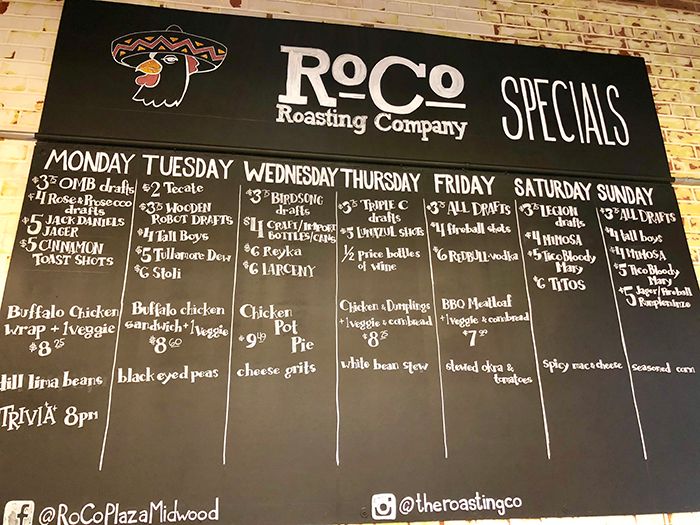 RoCo
Roasting Company
SPECIALS
MONDAY
$3.75 OMB drafts
$4 Rose & Prosecco
drafts
$5 JACK DANIELS
JAGER
$5 CINNAMON
TOAST SHOTS
Buffalo Chicken
wrap + 1 veggie
$8.25
dill lima beans
TRIVIA 8pm
TUESDAY
$2 Tecate
$3.75 WOODEN
ROBOT DRAFTS
$4 Tall Boys
$5 Tullamore Dew
$6 Stoli
Buffalo chicken
sandwich + 1 veggie
$8.60
black eyed peas
WEDNESDAY
$3.75 BIRDSONG
drafts
$4 CRAFT/IMPORT
BOTTLES/CANS
$6 Reyka
$6 LARCENY
Chicken
Pot
$9.49
Pie
cheese grits
THURSDAY
$3.75 TRIPLE C
drafts
$5 LUNAZUL SHOTS
1/2 Price bottles
of wine
Chicken & Dumplings
+ 1 veggie & cornbread
$8.25
white bean stew
FRIDAY
$3.75 ALL DRAFTS
$4 fireball shots
$6 REDBULL-vodka
BBQ Meatloaf
+ 1 veggie & cornbread
$7.99
stewed okra &
tomatoes
SATURDAY
$3.75 LEGION
drafts
$4 MIMOSA
$5 Tico Bloody
Mary
$6 TITOS
spicy mac & cheese
SUNDAY
$3.75 ALL DRAFTS
$4 tall boys
$4 MIMOSA
$5 Tico Bloody
Mary
$5 Jager/Fireball
seasoned corn
f @RoCoPlazaMidwood
@theroastingco